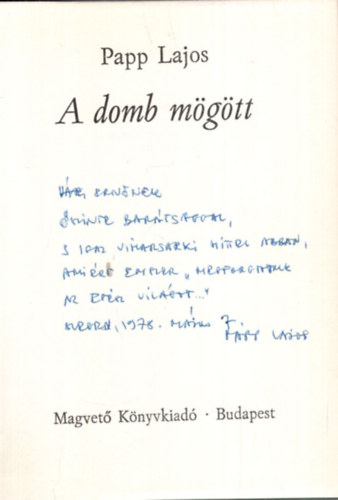 Papp Lajos
A domb mögött
ERNŐNEK
ŐSZINTE BARÁTSÁGGAL,
S IGAZ VIHARSARKI HITTEL ABBAN,
AMIÉRT EMBER „MEGFORGATJUK
AZ EGÉSZ VILÁGOT..."
1978. 7.
PAPP LAJOS
Magvető Könyvkiadó · Budapest